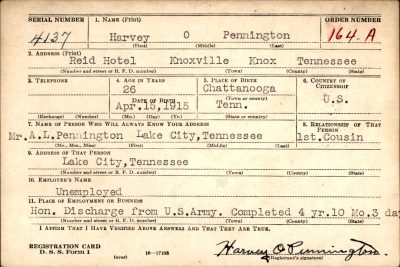 SERIAL NUMBER 1. NAME (Print) ORDER NUMBER
4137 Harvey O Pennington 164.A
(First) (Middle) (Last)
2. ADDRESS (Print)
Reid Hotel Knoxville Knox Tennessee
(Number and street or R. F. D. number) (Town) (County) (State)
3. TELEPHONE 4. AGE IN YEARS 5. PLACE OF BIRTH 6. COUNTRY OF CITIZENSHIP
26 Chattanooga
DATE OF BIRTH (Town or county) U.S.
Apr.15,1915 Tenn.
(Exchange) (Number) (Mo.) (Day) (Yr.) (State or country)
7. NAME OF PERSON WHO WILL ALWAYS KNOW YOUR ADDRESS 8. RELATIONSHIP OF THAT PERSON
Mr.A.L.Pennington Lake City,Tennessee 1st.Cousin
(Mr., Mrs., Miss) (First) (Middle) (Last)
9. ADDRESS OF THAT PERSON
Lake City,Tennessee
(Number and street or R. F. D. number) (Town) (County) (State)
10. EMPLOYER'S NAME
Unemployed
11. PLACE OF EMPLOYMENT OR BUSINESS
Hon. Discharge from U.S.Army. Completed 4 yr.10 Mo.3 da
(Number and street or R. F. D. number) (Town) (County) (State)
I AFFIRM THAT I HAVE VERIFIED ABOVE ANSWERS AND THAT THEY ARE TRUE.
REGISTRATION CARD
D. S. S. Form 1 (over) 16—17105 Harvey O Pennington
(Registrant's signature)